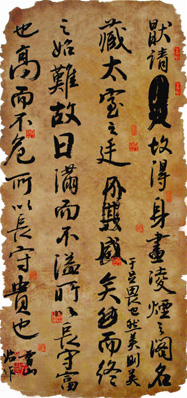 猒請故得身畫凌煙之閣名
藏太室之廷盛矣而終
于足畏也然美則美
之始難故曰滿而不溢所以長守富
也高而不危所以長守貴也